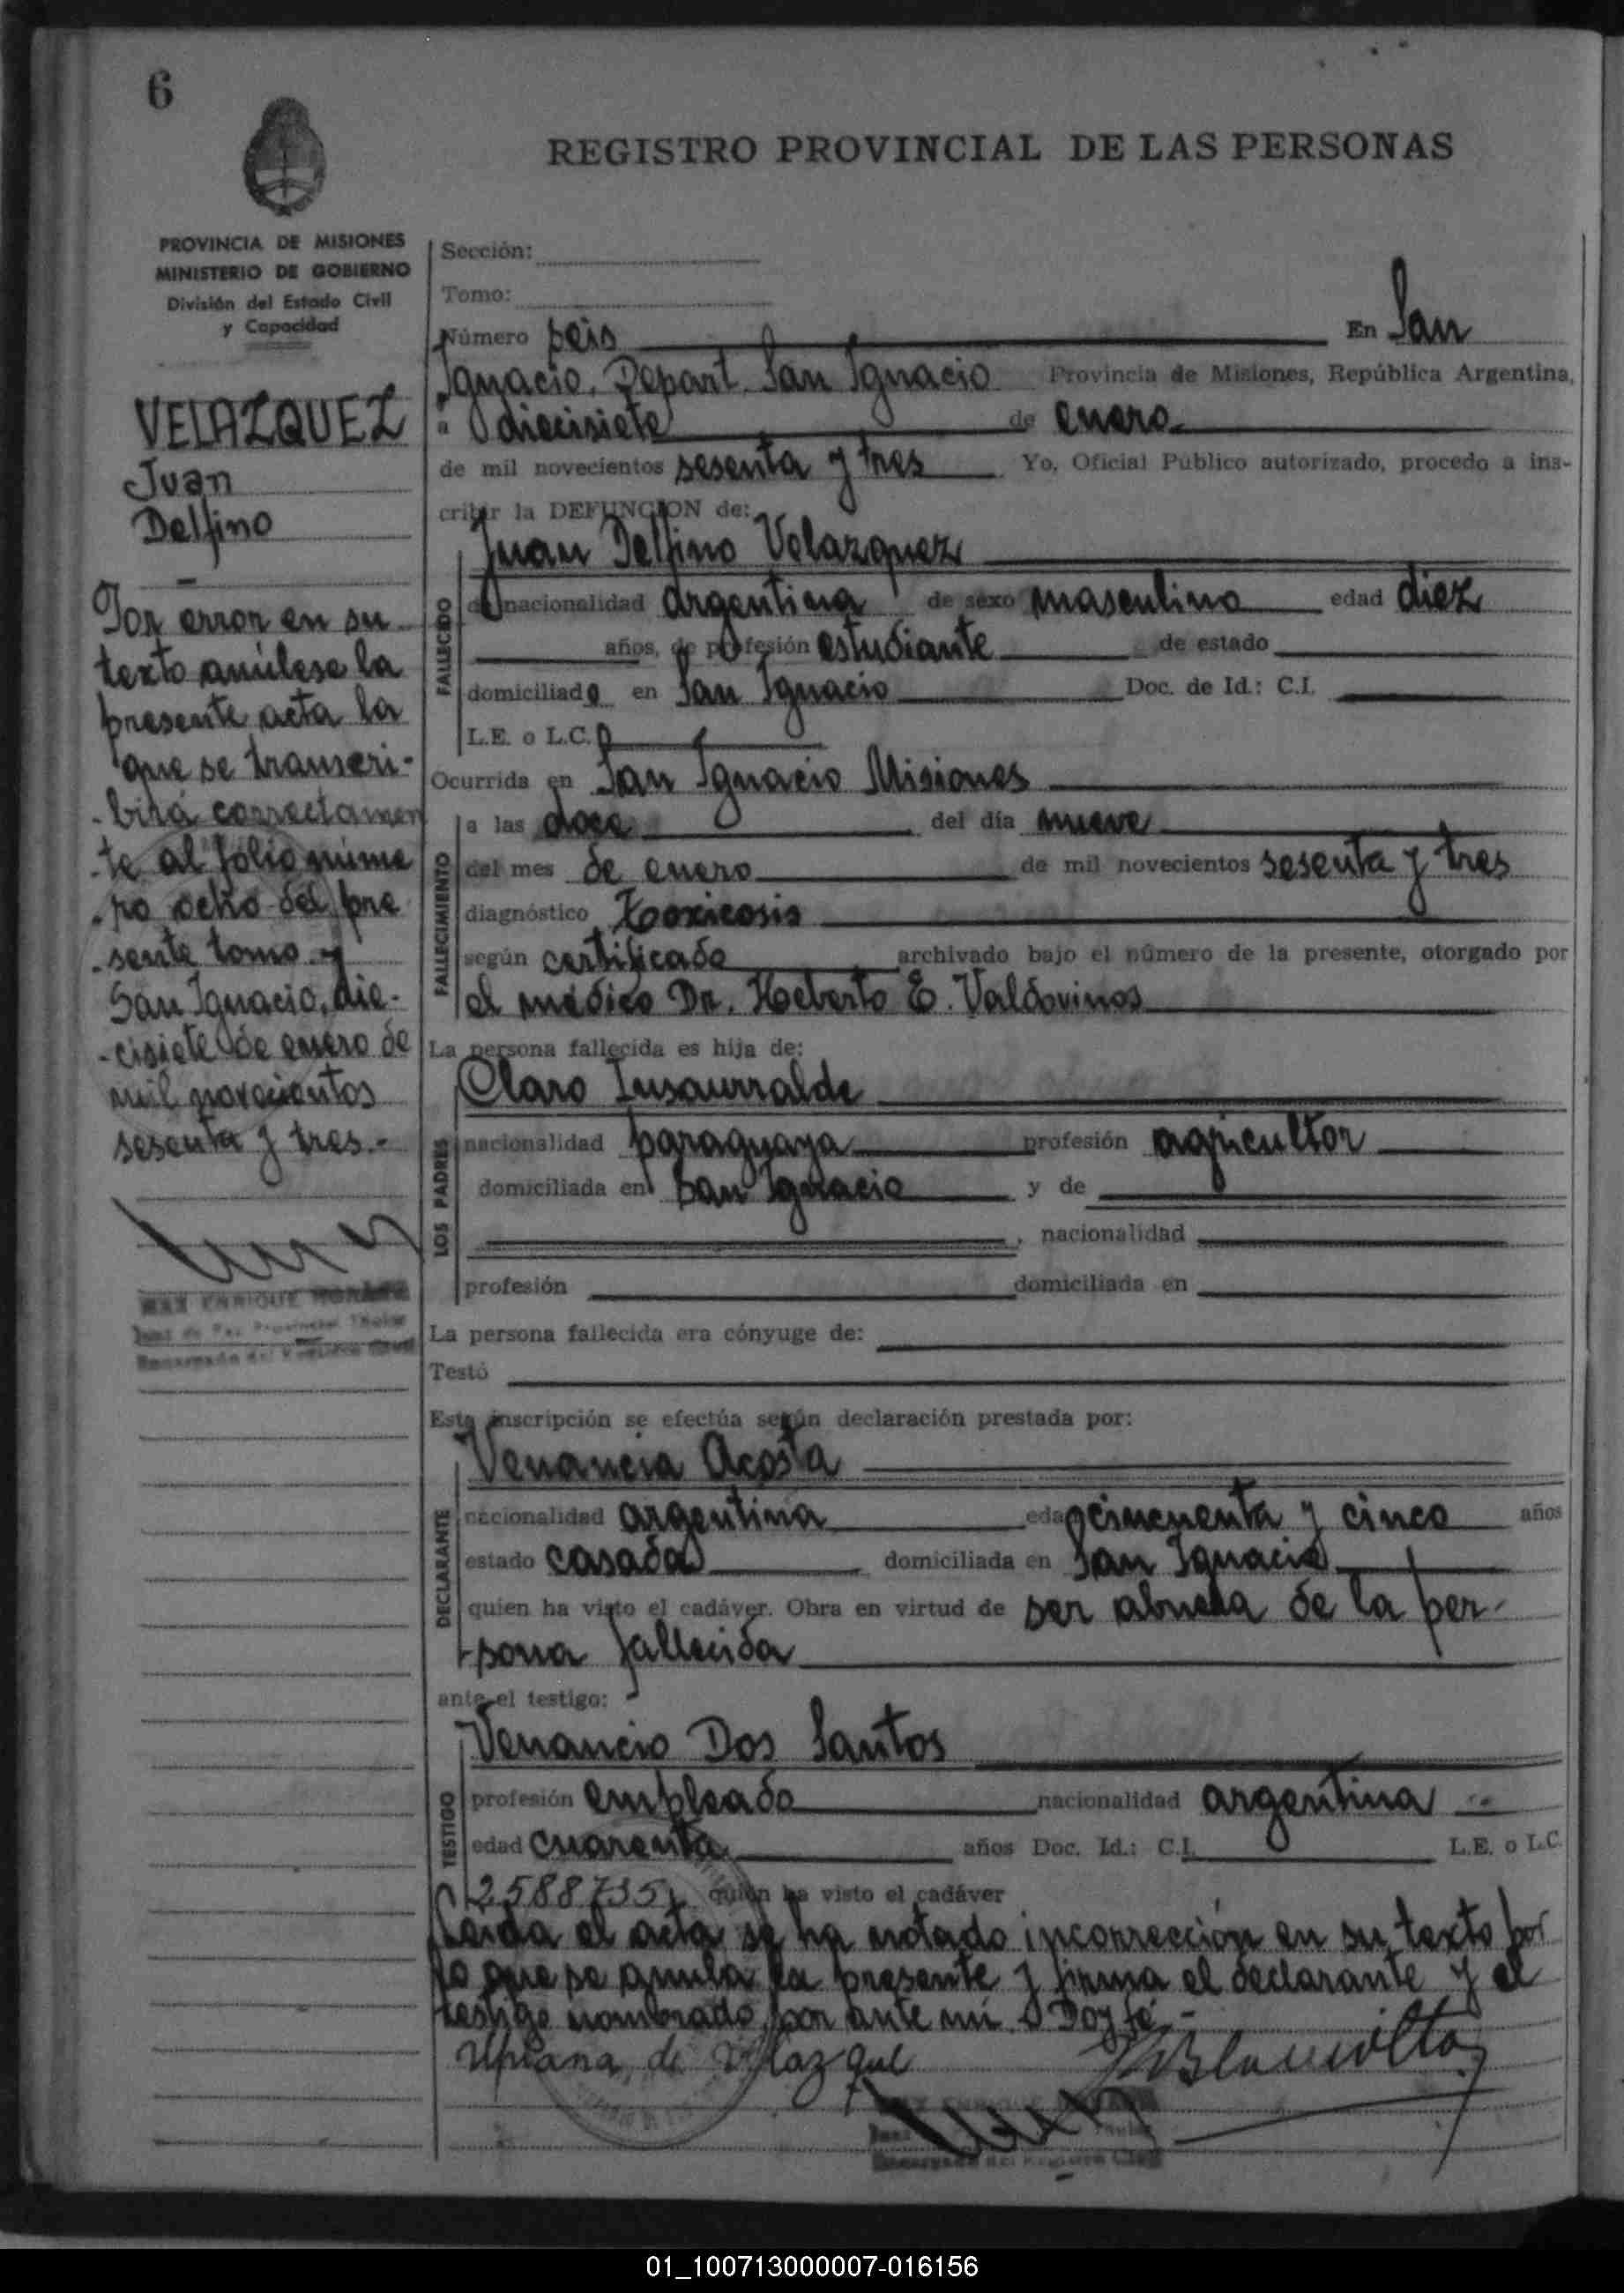 6
REGISTRO PROVINCIAL DE LAS PERSONAS
PROVINCIA DE MISIONES
MINISTERIO DE GOBIERNO
División del Estado Civil
y Capacidad
VELAZQUEZ
Juan
Delfino
Por error en su
texto anúlese la
presente acta la
que se transcri-
-birá correctamen
-te al folio núme
-ro ocho del pre
-sente tomo.-
San Ignacio, die-
-cisiete de enero de
mil novecientos
sesenta y tres.-
MAX ENRIQUE
Juez de Paz Provincial Titular
Encargado del Registro Civil
Sección:
Tomo:
Número seis En San
Ignacio, Depart. San Ignacio Provincia de Misiones, República Argentina,
a diecisiete de enero
de mil novecientos sesenta y tres Yo, Oficial Público autorizado, procedo a ins-
cribir la DEFUNCION de:
Juan Delfino Velazquez
FALLECIDO
de nacionalidad argentina de sexo masculino edad diez
años, de profesión estudiante de estado
domiciliado en San Ignacio Doc. de Id.: C.I.
L.E. o L.C.
Ocurrida en San Ignacio Misiones
FALLECIMIENTO
a las doce del día nueve
del mes de enero de mil novecientos sesenta y tres
diagnóstico Toxicosis
según certificado archivado bajo el número de la presente, otorgado por
el médico Dr. Heberto E. Valdovinos
La persona fallecida es hija de:
Claro Insaurralde
LOS PADRES
nacionalidad paraguaya profesión agricultor
domiciliada en San Ignacio y de
, nacionalidad
profesión domiciliada en
La persona fallecida era cónyuge de:
Testó
Esta inscripción se efectúa según declaración prestada por:
Venancia Acosta
DECLARANTE
nacionalidad argentina edad cincuenta y cinco años
estado casada domiciliada en San Ignacio
quien ha visto el cadáver. Obra en virtud de ser abuela de la per-
-sona fallecida
ante el testigo:
Venancio Dos Santos
TESTIGO
profesión empleado nacionalidad argentina
edad cuarenta años Doc. Id.: C.I. L.E. o L.C.
2588735 quien ha visto el cadáver
Leída el acta se ha notado incorrección en su texto por
lo que se anula la presente y firma el declarante y el
testigo nombrado por ante mi. Doy fé.-
de
Encargado del Registro Civil
01_100713000007-016156